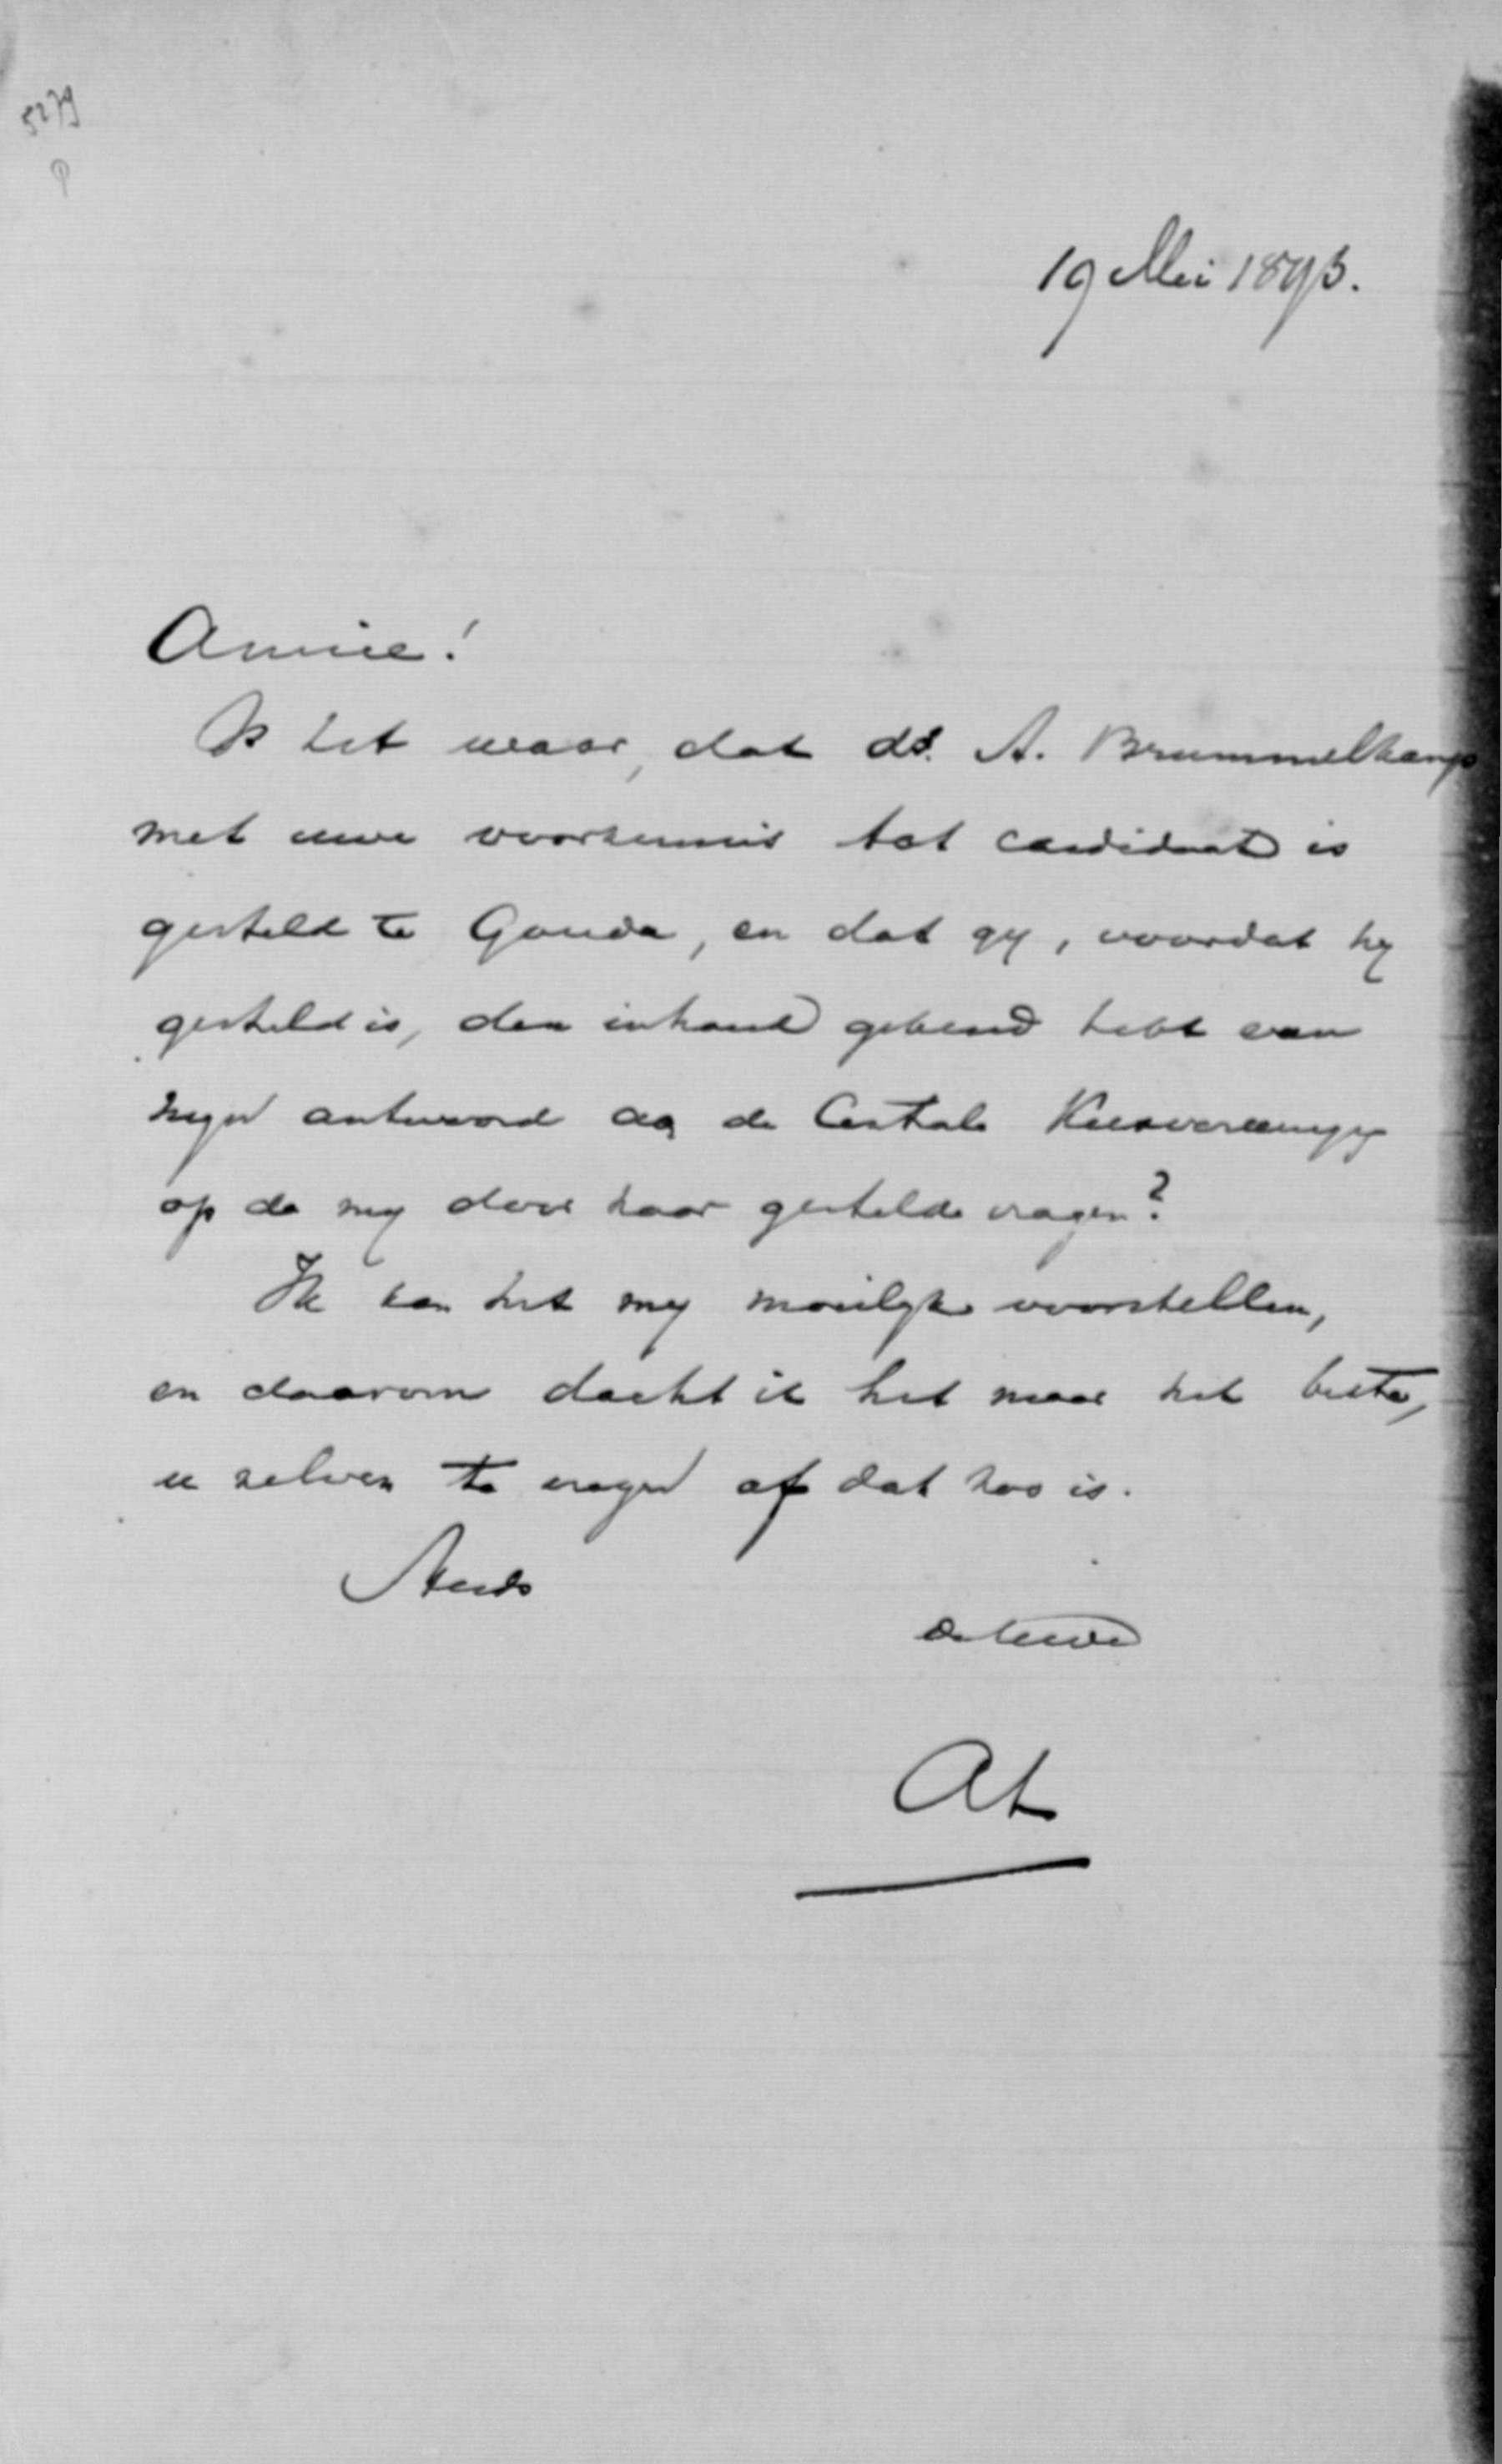 5279
19 Mei 1893.
Amice!
Is het waar, dat ds. A. Brummelkamp
met uwe voorkennis tot candidaat is
gesteld te Gouda, en dat gy, voordat hy
gesteld is, den inhoud gekend hebt van
mijn antwoord aan de Centrale Kiesvereeniging
op de my door haar gestelde vragen?
Ik kan het my moeilyk voorstellen,
en daarom dacht ik het maar het beste,
u zelven te vragen of dat zoo is.
Steeds
de uwe
AL